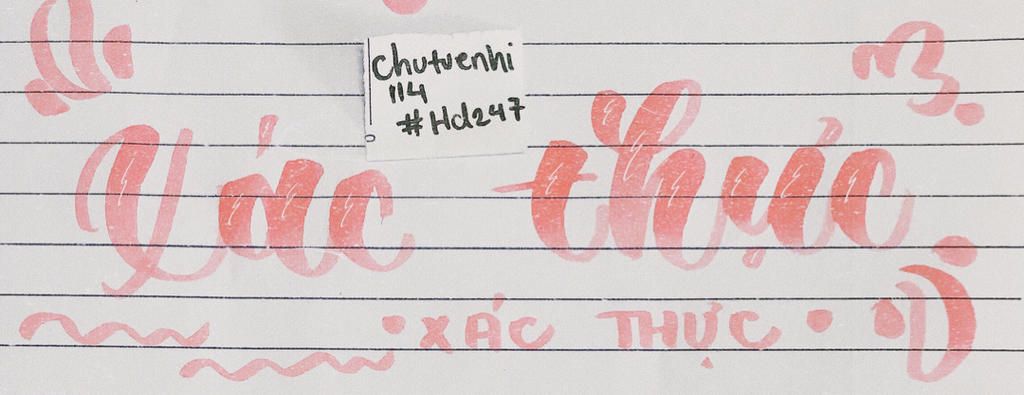 chutuenhi
114
#Hd247
Xác thực
XÁC THỰC